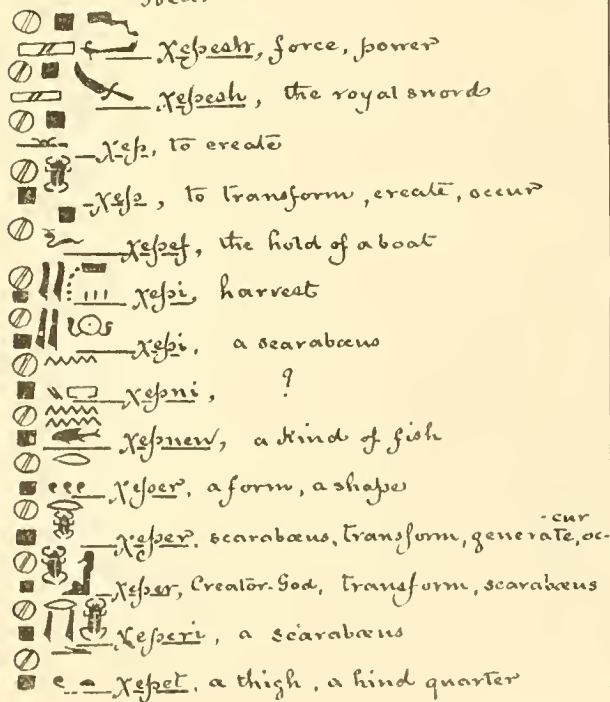 χepesh, force, power
χepesh, the royal sword
χep, to create
χep, to transform, create, occur
χepef, the hold of a boat
χepi, harvest
χepi, a scarabæus
χepni, ?
χepnew, a kind of fish
χeper, a form, a shape
-cur
χeper, scarabæus, transform, generate, oc-
χeper, Creator-God, transform, scarabæus
χeperi, a scarabæus
χepet, a thigh, a hind quarter